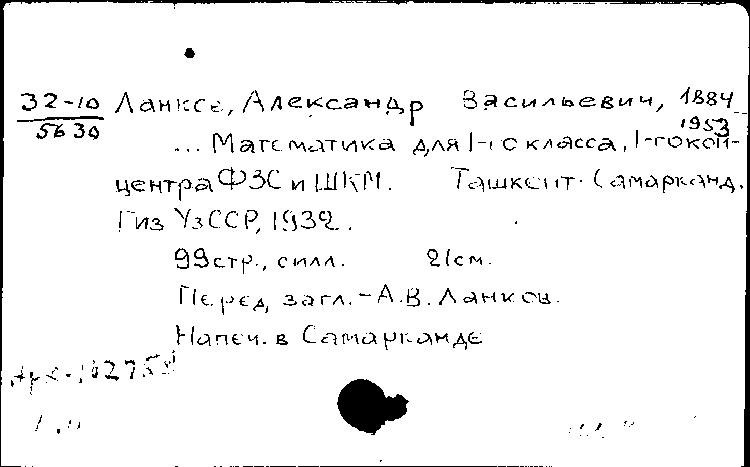 32-10 Ланков, Александр Васильевич, 1884-
5630 1953
... Математика для 1-го класса, 1-го кон-
центра ФЗС и ШКМ. Ташкент-Самарканд.
Гиз УзССР, 1932.
99 стр., с илл. 21 см.
Перед загл. - А.В. Ланков.
Напеч. в Самарканде